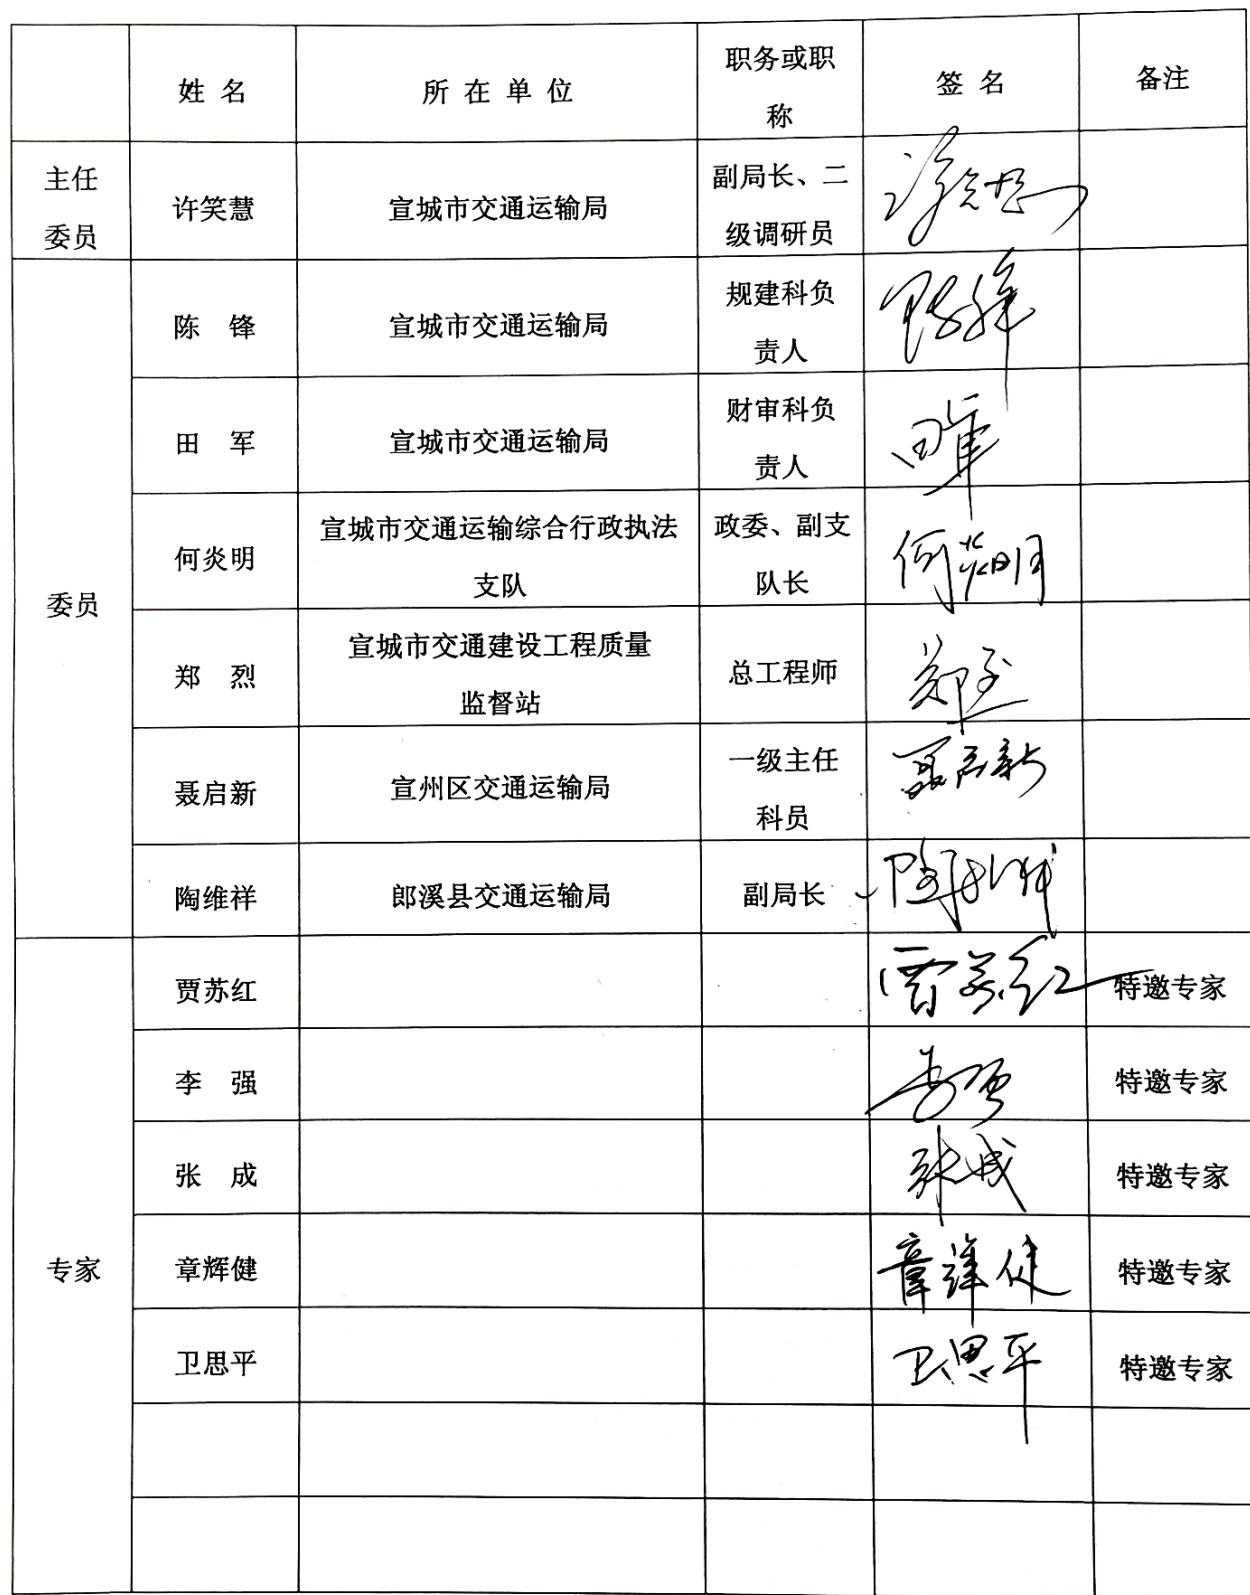 姓 名 所 在 单 位 职务或职称 签 名 备注
主任委员 许笑慧 宣城市交通运输局 副局长、二级调研员 许笑慧
委员 陈 锋 宣城市交通运输局 规建科负责人 陈锋
田 军 宣城市交通运输局 财审科负责人 田军
何炎明 宣城市交通运输综合行政执法支队 政委、副支队长 何炎明
郑 烈 宣城市交通建设工程质量监督站 总工程师 郑烈
聂启新 宣州区交通运输局 一级主任科员 聂启新
陶维祥 郎溪县交通运输局 副局长 陶维祥
专家 贾苏红 贾苏红 特邀专家
李 强 李强 特邀专家
张 成 张成 特邀专家
章辉健 章辉健 特邀专家
卫思平 卫思平 特邀专家